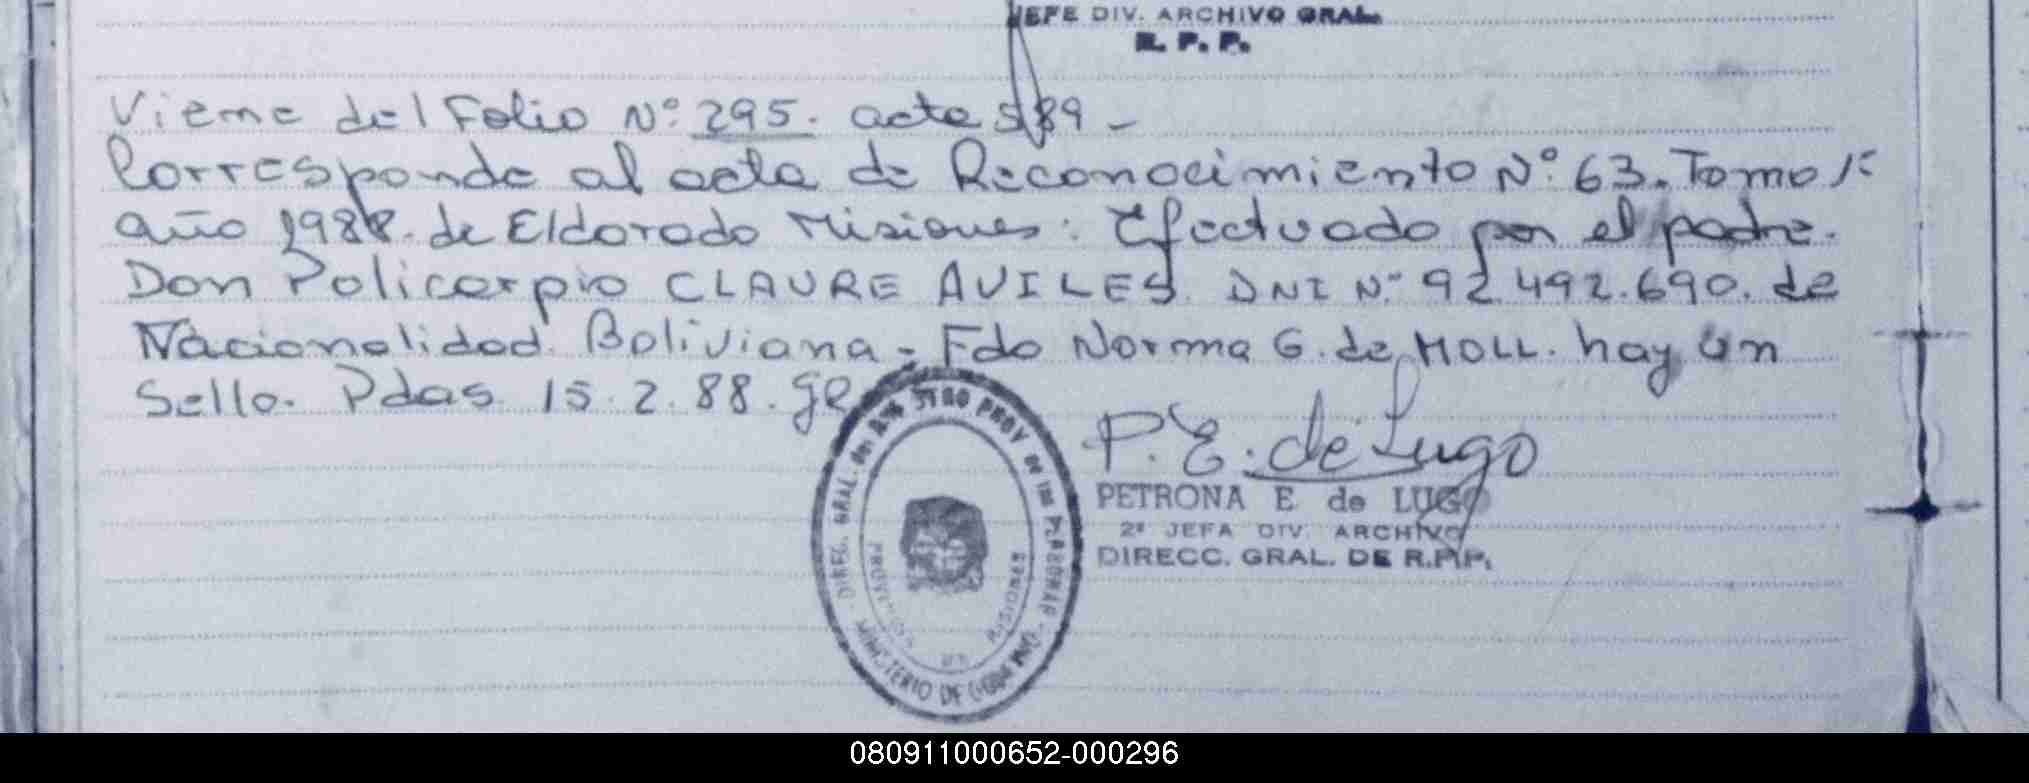 JEFE DIV. ARCHIVO GRAL.
R. P. P.
Viene del Folio Nº 295. acta 589 -
Corresponde al acta de Reconocimiento Nº 63. Tomo 1º
año 1988. de Eldorado Misiones: Efectuado por el padre.
Don Policarpio CLAURE AVILES. DNI Nº 92.492.690. de
Nacionalidad Boliviana - Fdo Norma G. de MOLL. hay un
Sello. Pdas. 15.2.88.
P. E. de Lugo
PETRONA E. de LUGO
2ª JEFA DIV. ARCHIVO
DIRECC. GRAL. DE R.P.P.
DIREC. GRAL. del REGISTRO PROV. de las PERSONAS
MINISTERIO DE GOBIERNO
PROVINCIA DE MISIONES
080911000652-000296